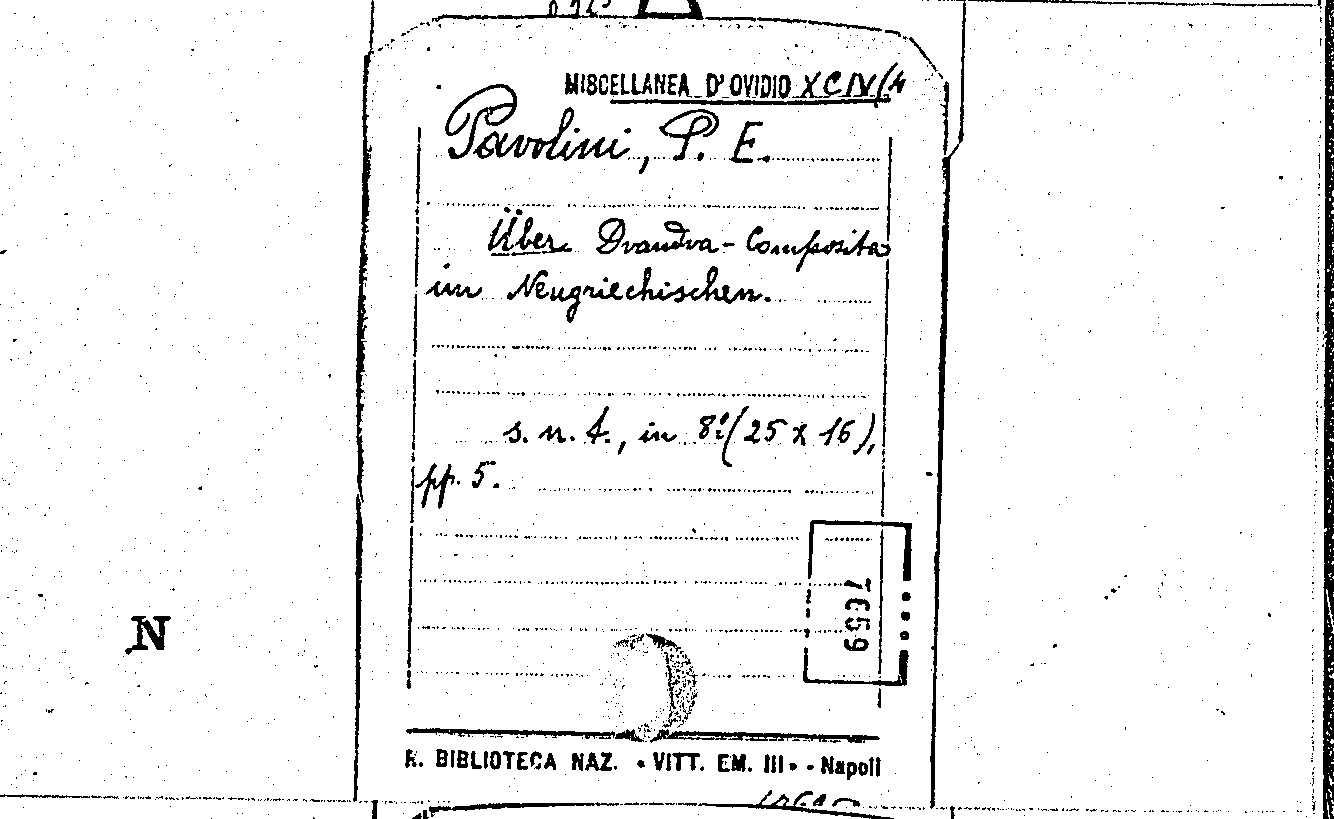 MISCELLANEA D'OVIDIO XCIV/4
Pavolini, P. E.
Über Dvandva-Composita
im Neugriechischen.
s. n. t., in 8º (25 x 16),
pp. 5.
7659
N
R. BIBLIOTECA NAZ. • VITT. EM. III • - Napoli